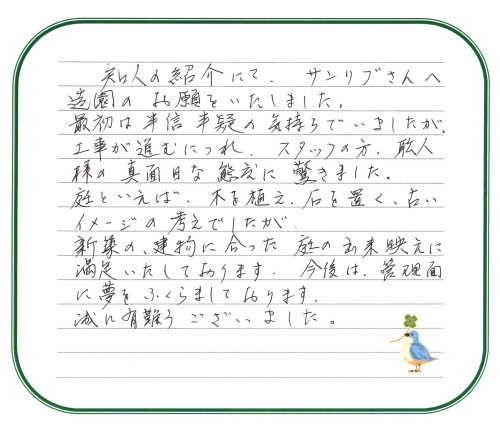 知人の紹介にて、サンリブさんへ
造園のお願をいたしました。
最初は半信半疑の気持ちでいましたが、
工事が進むにつれ、スタッフの方、職人
様の真面目な態度に驚きました。
庭といえば、木を植え、石を置く、古い
イメージの考えでしたが、
新築の、建物に合った庭の出来映えに
満足いたしております。今後は、管理面
に夢をふくらましております。
誠に有難うございました。